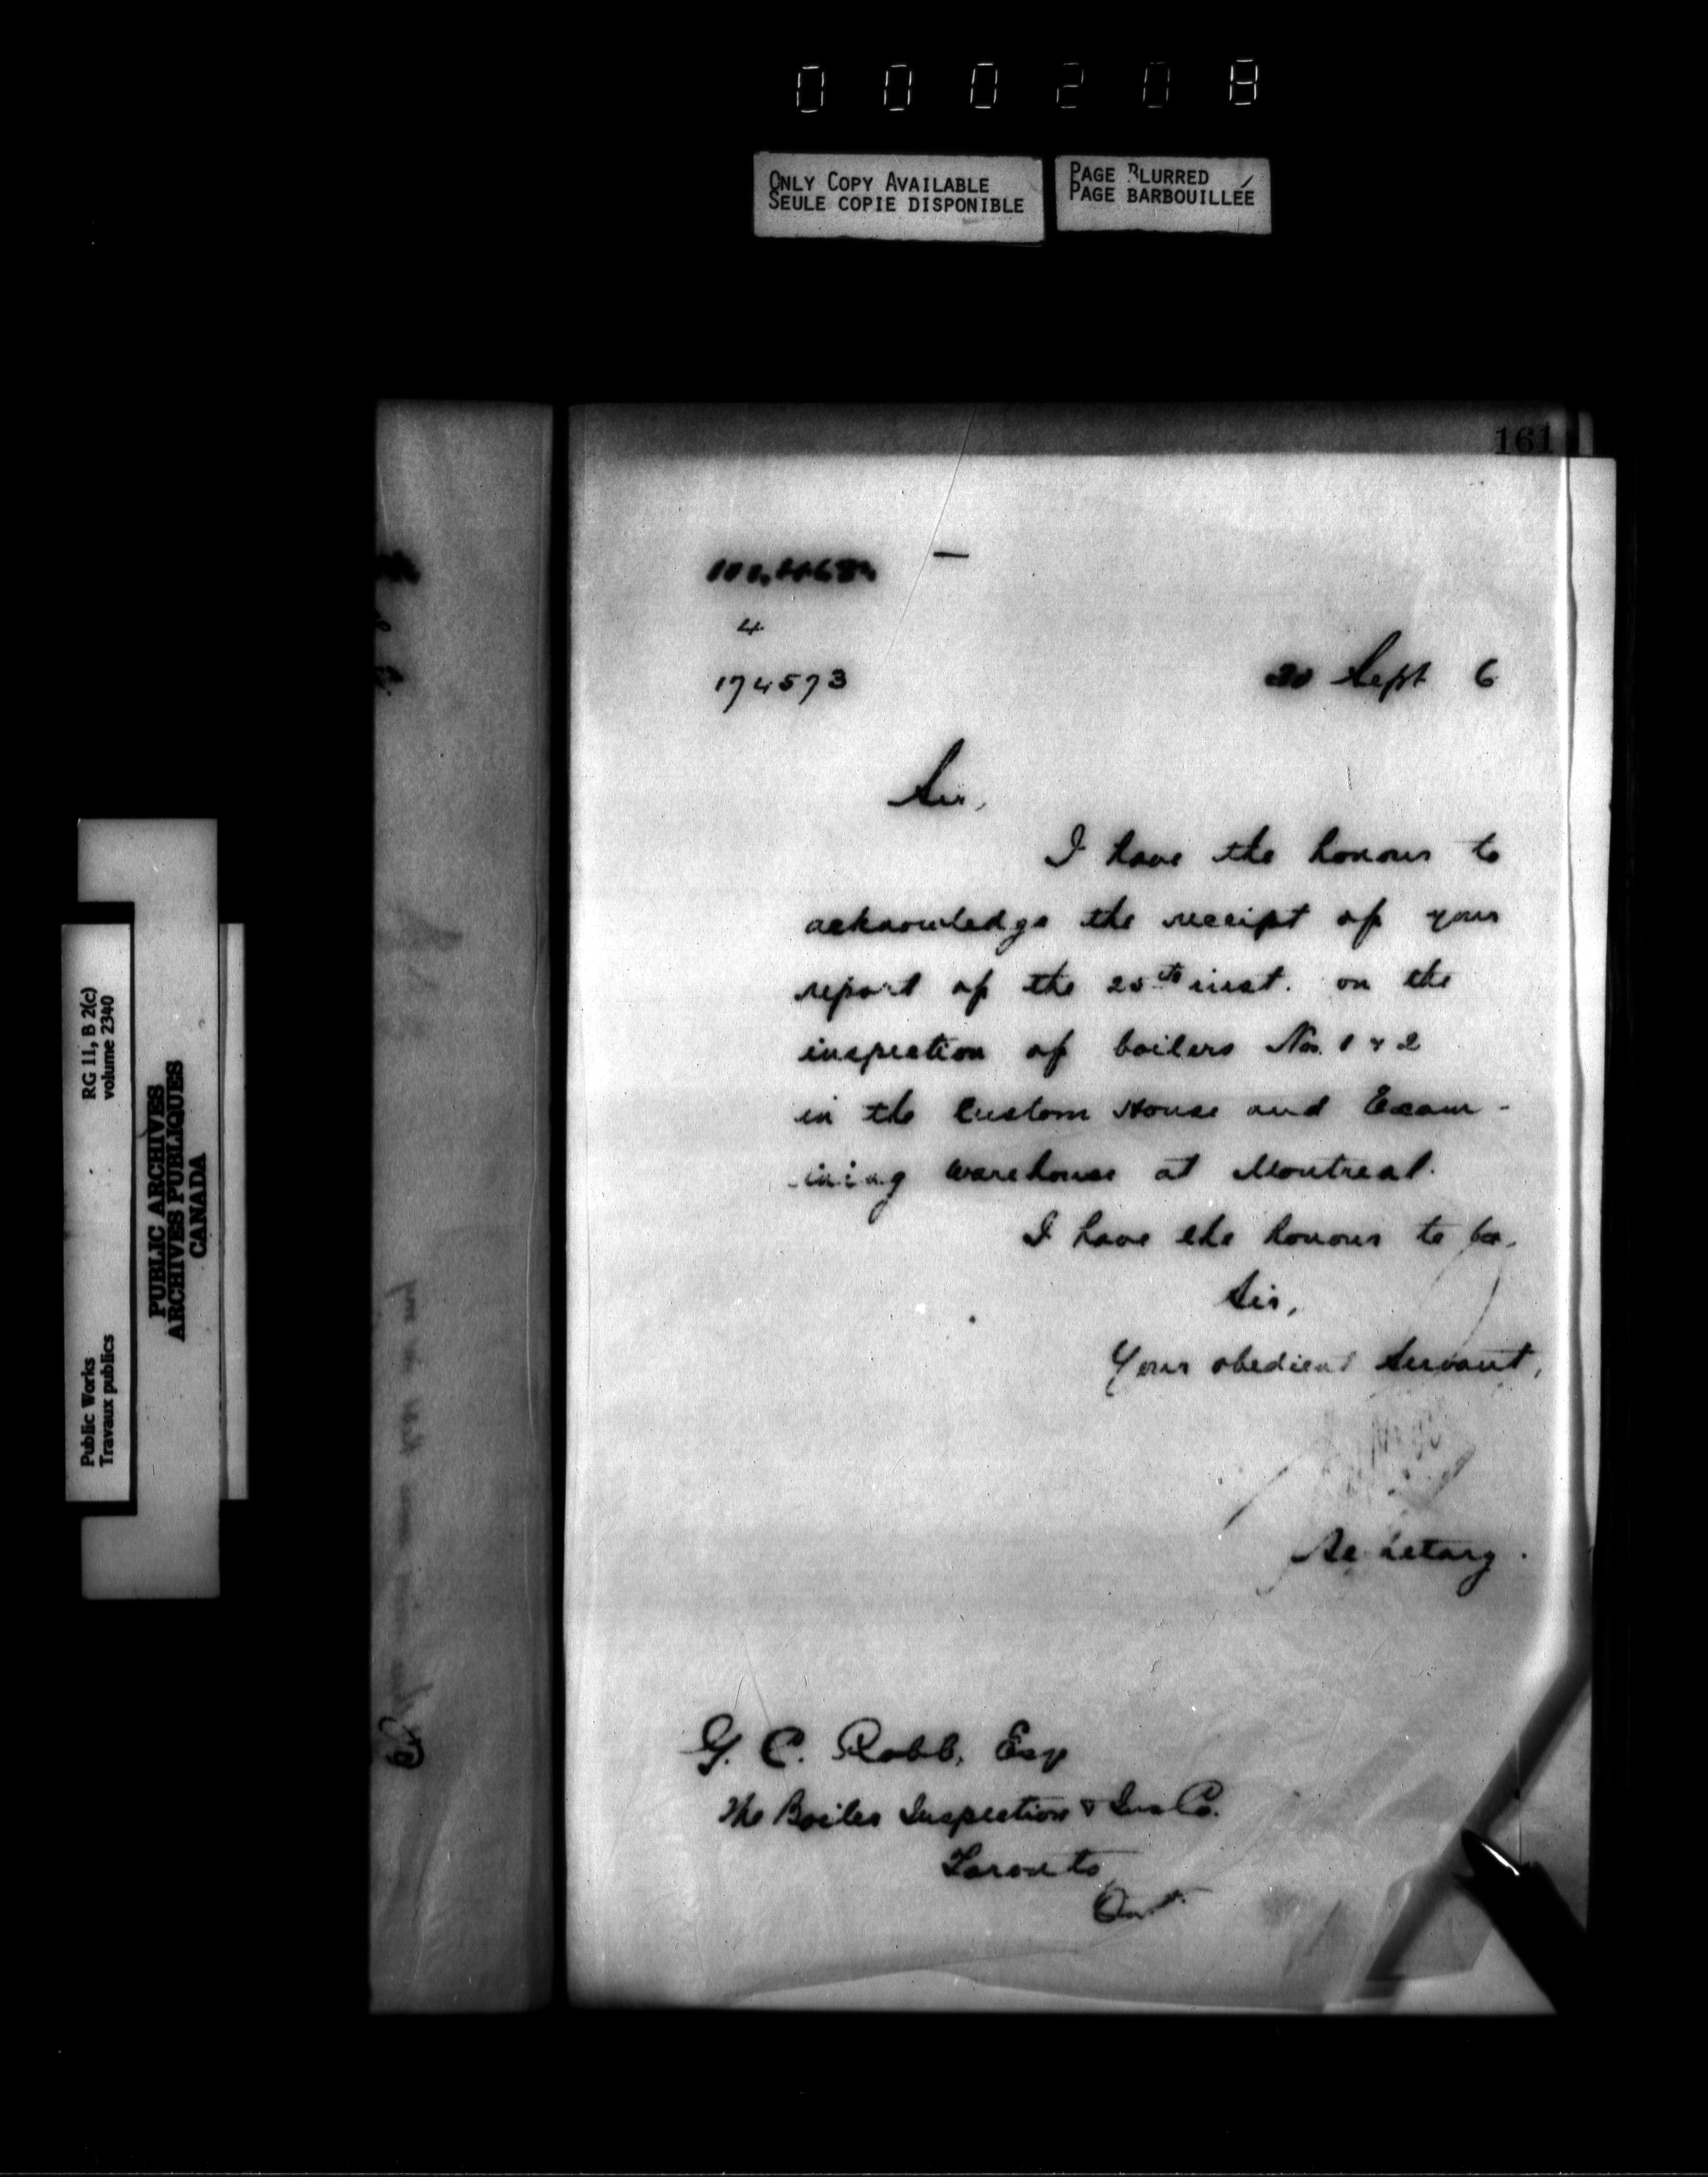 000208
ONLY COPY AVAILABLE
SEULE COPIE DISPONIBLE
PAGE BLURRED
PAGE BARBOUILLÉE
161
4
174573
Sept 6
Sir,
I have the honour to
acknowledge the receipt of your
report of the 25th inst. on the
inspection of boilers Nos. 1 & 2
in the Custom House and Exam-
ining warehouse at Montreal.
I have the honour to be,
Sir,
Your obedient Servant,
Secretary.
G. C. Robb, Esq
The Boiler Inspection & Ins Co.
Toronto
Ont.
RG 11, B 2(c)
volume 2340
Public Works
Travaux publics
PUBLIC ARCHIVES
ARCHIVES PUBLIQUES
CANADA